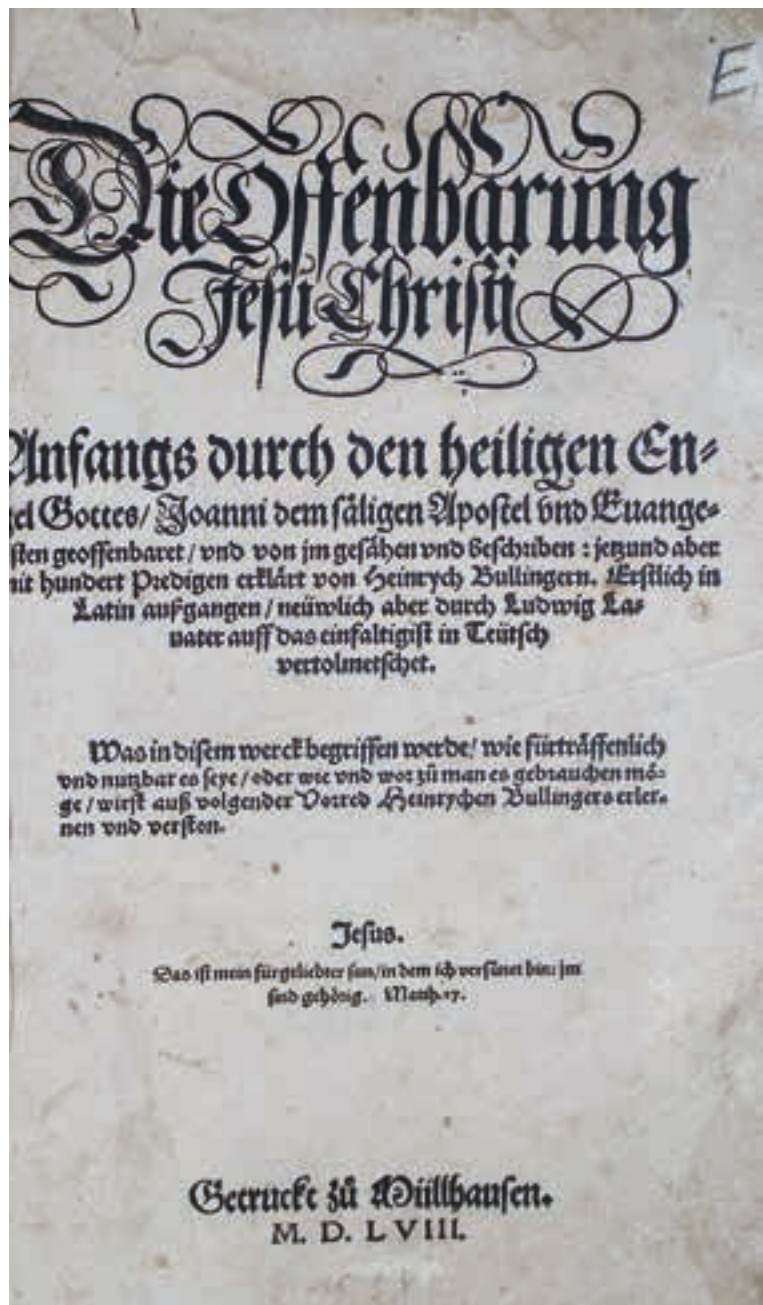 E
Die Offenbarung
Jesu Christi
Anfangs durch den heiligen En⸗
el Gottes/ Joanni dem säligen Apostel vnd Euange⸗
sten geoffenbaret / vnd von jm gesähen vnd beschriben : jetzund aber
mit hundert Predigen erklärt von Heinrych Bullingern. Erstlich in
Latin außgangen / neüwlich aber durch Ludwig La⸗
uater auff das einfaltigist in Teütsch
vertolmetschet.
Was in disem werck begriffen werde/ wie fürträffenlich
vnd nutzbar es seye / oder wie vnd wor zů man es gebrauchen mö⸗
ge / wirst auß volgender Vorred Heinrychen Bullingers erler⸗
nen vnd verston.
Jesus.
Das ist mein fürgeliebter sun/ in dem ich versünet bin: jm
sind gehörig. Matth. 17.
Getruckt zů Müllhausen.
M. D. LVIII.